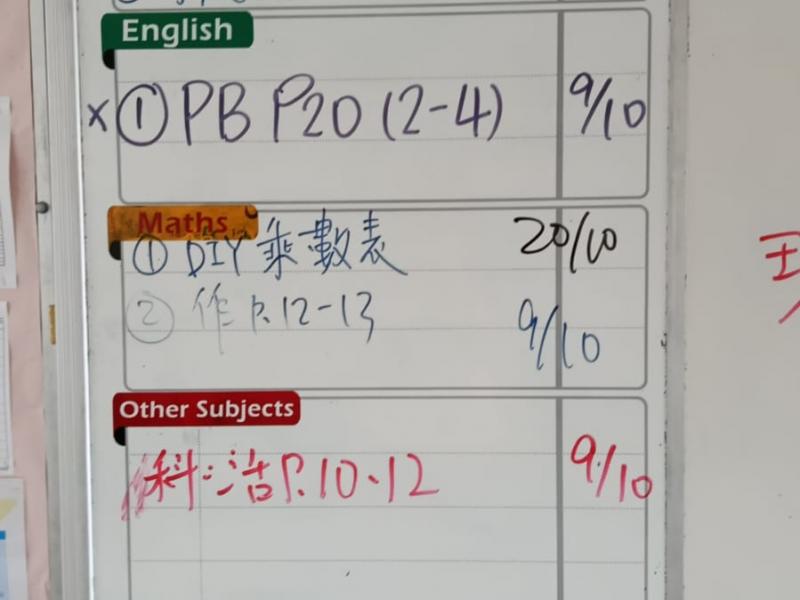 English
×① PB P20 (2-4) 9/10
Maths
① DIY 乘數表 20/10
② 作 P.12-13 9/10
Other Subjects
科:活P.10、12 9/10